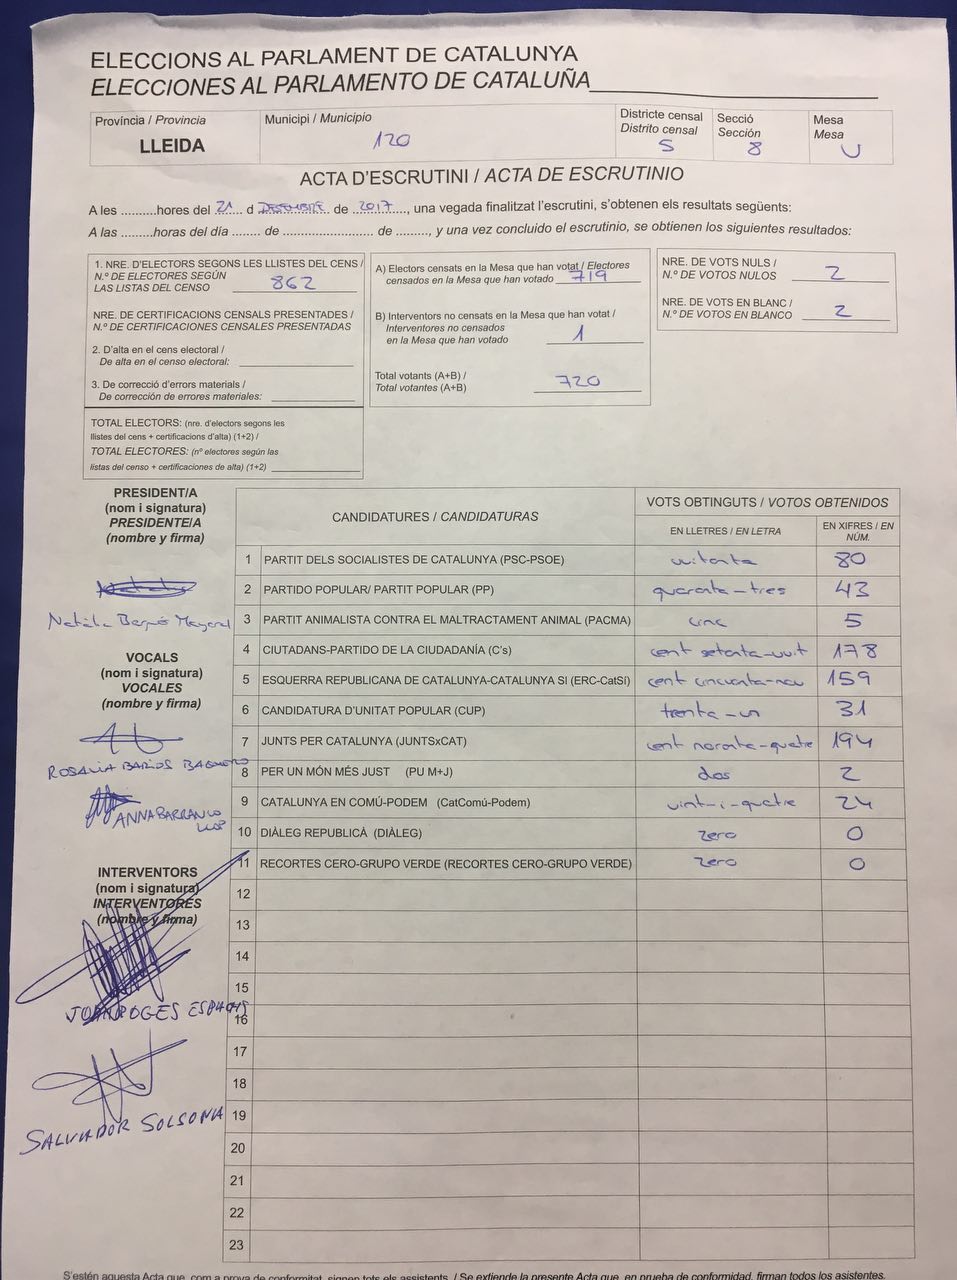 ELECCIONS AL PARLAMENT DE CATALUNYA
ELECCIONES AL PARLAMENTO DE CATALUÑA
Província / Provincia
LLEIDA
Municipi / Municipio
120
Districte censal
Distrito censal
5
Secció
Sección
8
Mesa
Mesa
U
ACTA D'ESCRUTINI / ACTA DE ESCRUTINIO
A les .........hores del 21 d DESEMBRE de 2017, una vegada finalitzat l'escrutini, s'obtenen els resultats següents:
A las .........horas del día ........ de ........................ de ........, y una vez concluido el escrutinio, se obtienen los siguientes resultados:
1. NRE. D'ELECTORS SEGONS LES LLISTES DEL CENS /
N.º DE ELECTORES SEGÚN
LAS LISTAS DEL CENSO 862
NRE. DE CERTIFICACIONS CENSALS PRESENTADES /
N.º DE CERTIFICACIONES CENSALES PRESENTADAS
2. D'alta en el cens electoral /
De alta en el censo electoral:
3. De correcció d'errors materials /
De corrección de errores materiales:
TOTAL ELECTORS: (nre. d'electors segons les
llistes del cens + certificacions d'alta) (1+2) /
TOTAL ELECTORES: (nº electores según las
listas del censo + certificaciones de alta) (1+2)
A) Electors censats en la Mesa que han votat / Electores
censados en la Mesa que han votado 719
B) Interventors no censats en la Mesa que han votat /
Interventores no censados
en la Mesa que han votado 1
Total votants (A+B) /
Total votantes (A+B) 720
NRE. DE VOTS NULS /
N.º DE VOTOS NULOS 2
NRE. DE VOTS EN BLANC /
N.º DE VOTOS EN BLANCO 2
PRESIDENT/A
(nom i signatura)
PRESIDENTE/A
(nombre y firma)
Natàlia
VOCALS
(nom i signatura)
VOCALES
(nombre y firma)
ROSALIA
ANNA BARRANCO
LLOP
INTERVENTORS
(nom i signatura)
INTERVENTORES
(nombre y firma)
SALVADOR SOLSONA
CANDIDATURES / CANDIDATURAS
VOTS OBTINGUTS / VOTOS OBTENIDOS
EN LLETRES / EN LETRA
EN XIFRES / EN NÚM.
1 PARTIT DELS SOCIALISTES DE CATALUNYA (PSC-PSOE) vuitanta 80
2 PARTIDO POPULAR/ PARTIT POPULAR (PP) quaranta-tres 43
3 PARTIT ANIMALISTA CONTRA EL MALTRACTAMENT ANIMAL (PACMA) cinc 5
4 CIUTADANS-PARTIDO DE LA CIUDADANÍA (C's) cent setanta-vuit 178
5 ESQUERRA REPUBLICANA DE CATALUNYA-CATALUNYA SÍ (ERC-CatSí) cent cincuanta-nou 159
6 CANDIDATURA D'UNITAT POPULAR (CUP) trenta-un 31
7 JUNTS PER CATALUNYA (JUNTSxCAT) cent noranta-quatre 194
8 PER UN MÓN MÉS JUST (PU M+J) dos 2
9 CATALUNYA EN COMÚ-PODEM (CatComú-Podem) vint-i-quatre 24
10 DIÀLEG REPUBLICÀ (DIÀLEG) zero 0
11 RECORTES CERO-GRUPO VERDE (RECORTES CERO-GRUPO VERDE) zero 0
12
13
14
15
16
17
18
19
20
21
22
23
S'estén aquesta Acta que, com a prova de conformitat, signen tots els assistents. / Se extiende la presente Acta que, en prueba de conformidad, firman todos los asistentes.